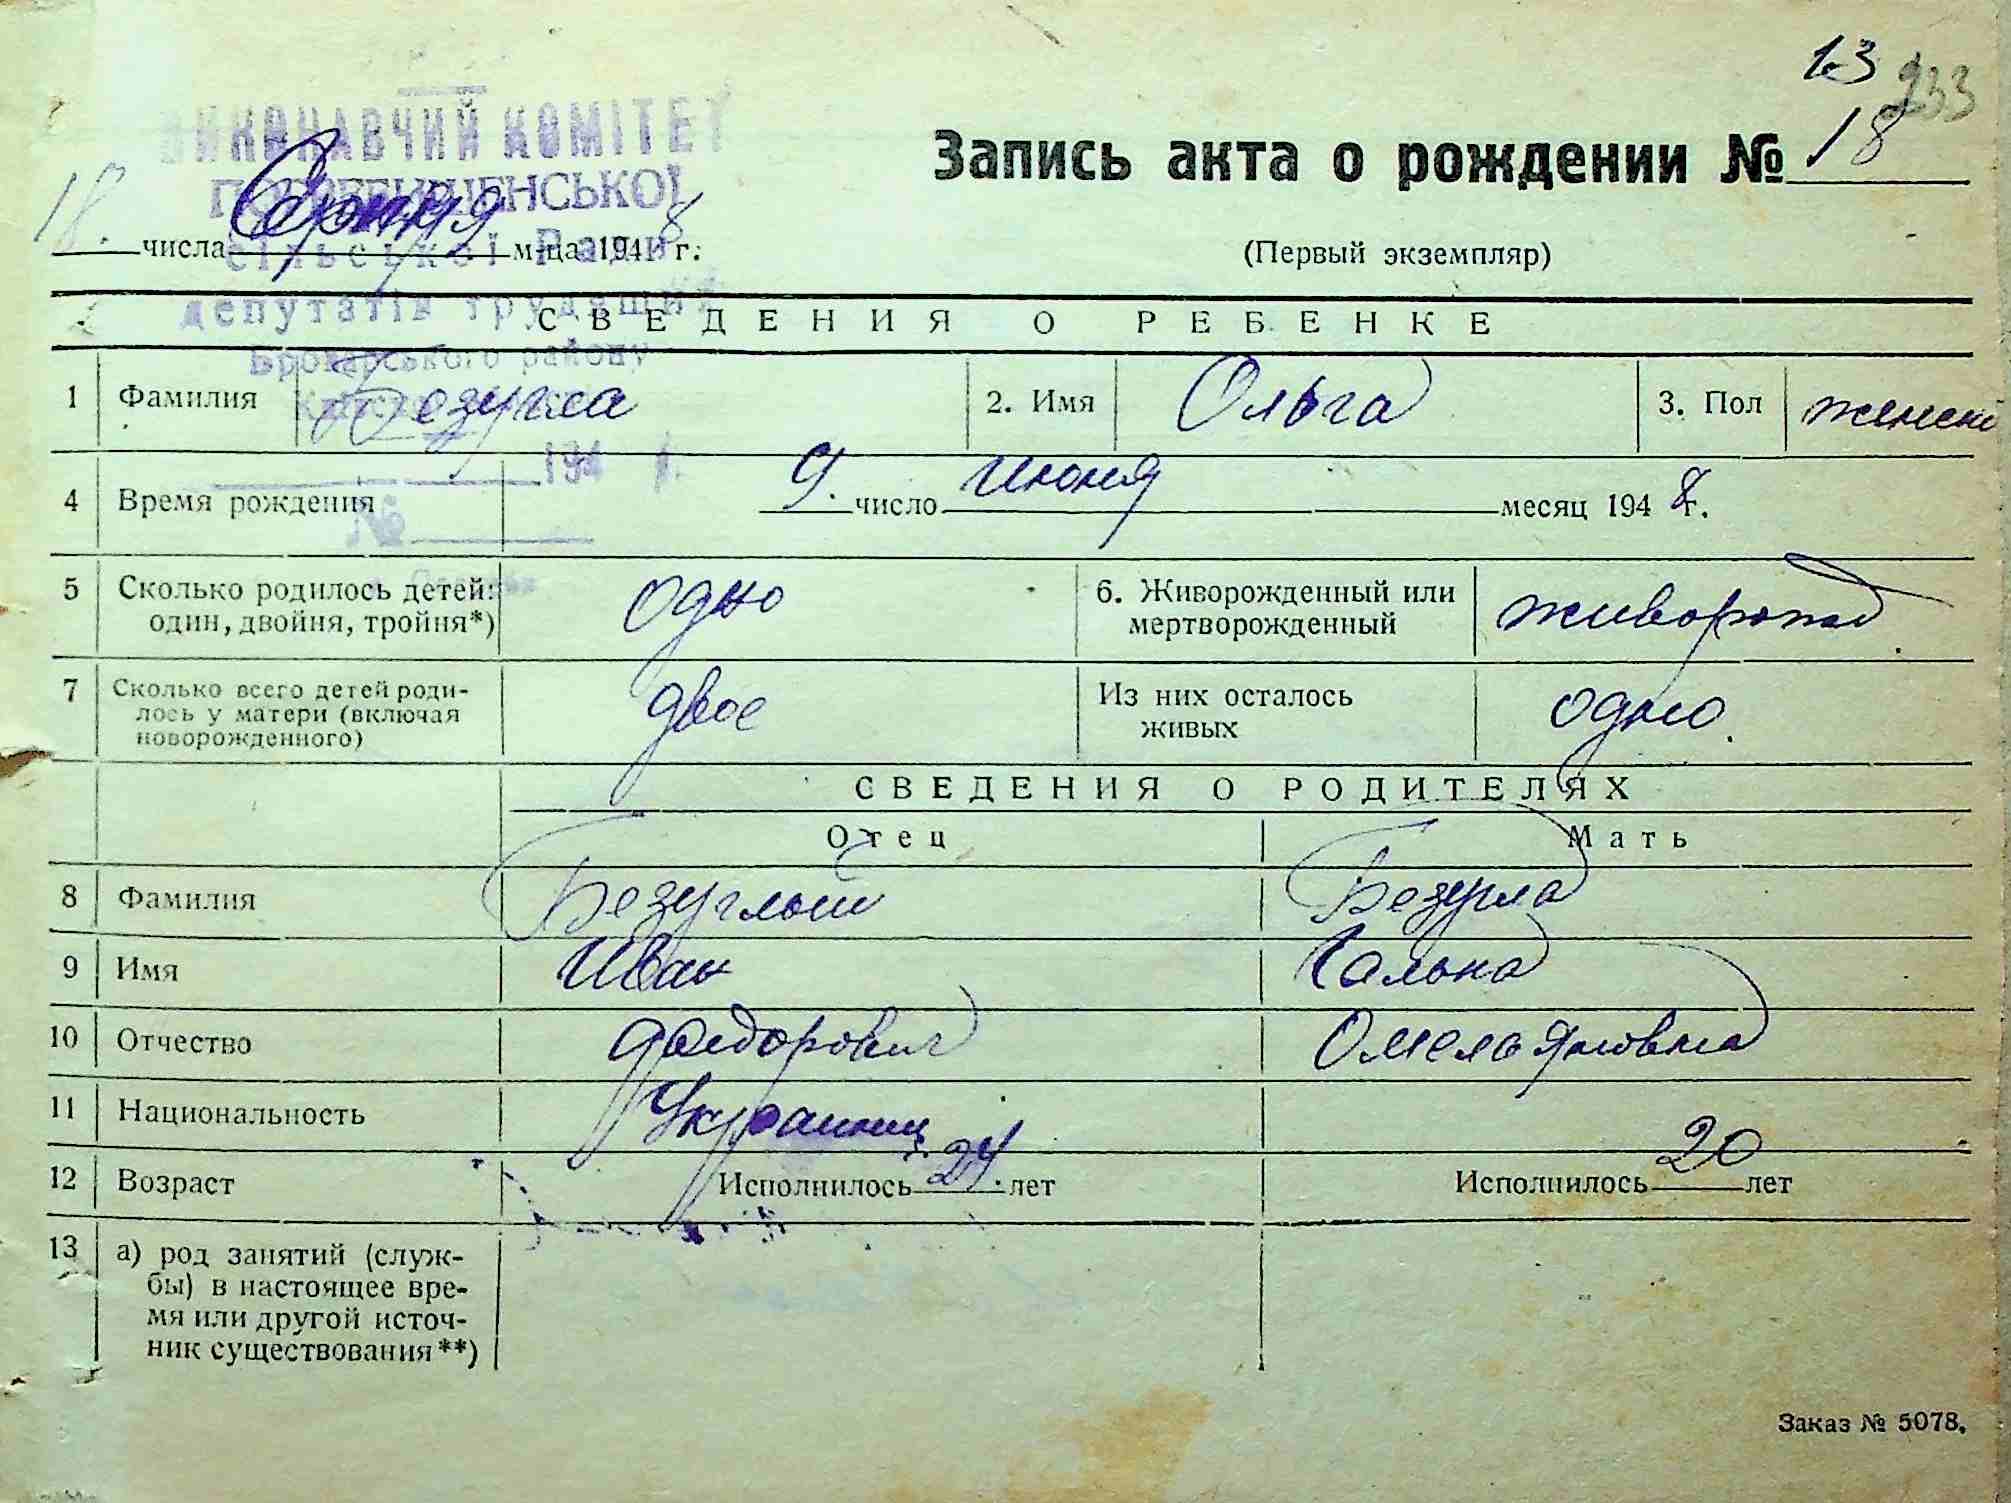 13
233
ВИКОНАВЧИЙ КОМІТЕТ
Запись акта о рождении № 18
18. числа м-ца 1948 г.
(Первый экземпляр)
сільської Ради
депутатів трудящих
СВЕДЕНИЯ О РЕБЕНКЕ
Броварського району
1 Фамилия Безугла 2. Имя Ольга 3. Пол женски
194 р.
4 Время рождения 9. число июня месяц 1948 г.
№
5 Сколько родилось детей: один, двойня, тройня*) одно 6. Живорожденный или мертворожденный живорожд.
7 Сколько всего детей роди-
лось у матери (включая
новорожденного) двое Из них осталось живых одно.
СВЕДЕНИЯ О РОДИТЕЛЯХ
Отец Мать
8 Фамилия Безуглый Безугла
9 Имя Иван Галина
10 Отчество Фёдорович Омельяновна
11 Национальность Украинец
12 Возраст Исполнилось 24 лет Исполнилось 20 лет
13 а) род занятий (служ-
бы) в настоящее вре-
мя или другой источ-
ник существования**)
Заказ № 5078.